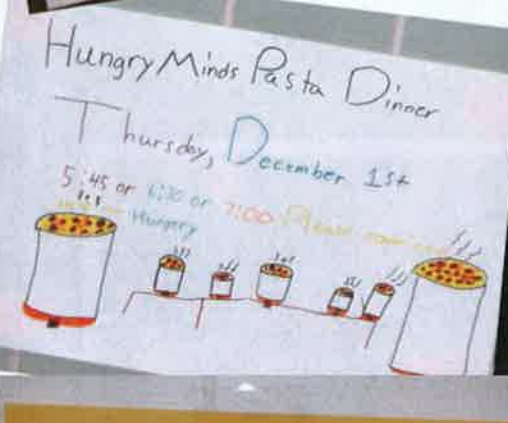 Hungry Minds Pasta Dinner
Thursday, December 1st
5:45 or 6:30 or 7:00 Please come
Hungery